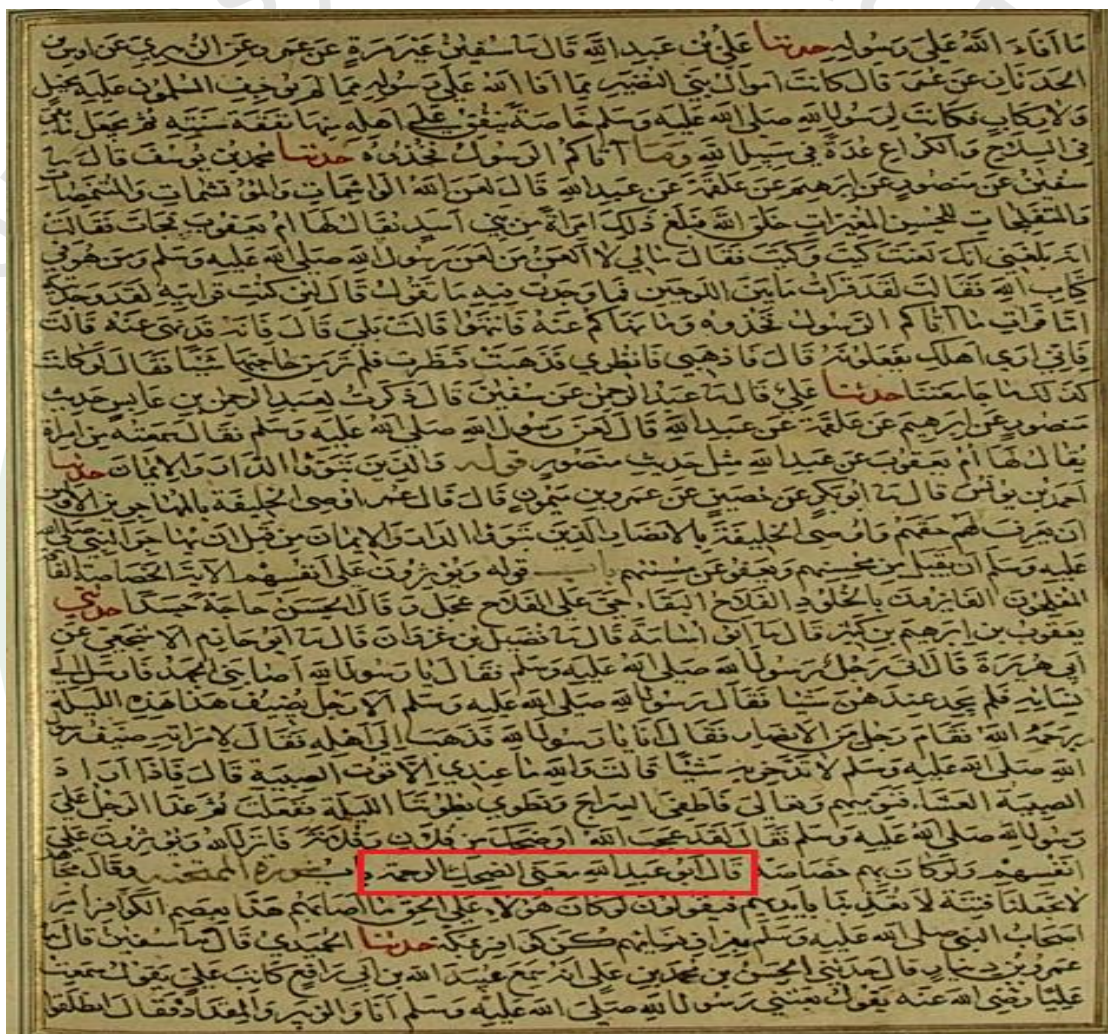 ما أفاء الله على رسوله حدثنا علي بن عبد الله قال نا سفين غير مرة عن عمرو عن الزهري عن اوس بن
الحدثان عن عمر قال كانت اموال بني النضير مما افا الله على رسوله مما لم يوجف المسلمون عليه بخيل
ولا ركاب فكانت لرسول الله صلى الله عليه وسلم خاصة ينفق على اهله منها نفقة سنته ثم يجعل ما بقي
في السلاح والكراع عدة في سبيل الله وما آتاكم الرسول فخذوه حدثنا محمد بن يوسف قال نا
سفين عن منصور عن ابرهيم عن علقمة عن عبد الله قال لعن الله الواشمات والموتشمات والمتنمصات
والمتفلجات للحسن المغيرات خلق الله فبلغ ذلك امراة من بني اسد يقال لها ام يعقوب فجات فقالت
انه بلغني انك لعنت كيت وكيت فقال مالي لا العن من لعن رسول الله صلى الله عليه وسلم ومن هو في
كتاب الله فقالت لقد قرات ما بين اللوحين فما وجدت فيه ما تقول قال لئن كنت قراتيه لقد وجدتيه
اما قرات ما آتاكم الرسول فخذوه وما نهاكم عنه فانتهوا قالت بلى قال فانه قد نهى عنه قالت
فاني ارى اهلك يفعلونه قال فاذهبي فانظري فذهبت فنظرت فلم تر من حاجتها شيئا فقال لو كانت
كذلك ما جامعتنا حدثنا علي قال نا عبد الرحمن عن سفين قال ذكرت لعبد الرحمن بن عابس حديث
منصور عن ابرهيم عن علقمة عن عبد الله قال لعن رسول الله صلى الله عليه وسلم فقال سمعته من امراة
يقال لها ام يعقوب عن عبد الله مثل حديث منصور قوله والذين تبوؤا الدار والايمان حدثنا
احمد بن يونس قال نا ابو بكر عن حصين عن عمرو بن ميمون قال قال عمر اوصي الخليفة بالمهاجرين الاولين
ان يعرف لهم حقهم واوصي الخليفة بالانصار الذين تبوؤا الدار والايمان من قبل ان يهاجر النبي صلى الله
عليه وسلم ان يقبل من محسنهم ويعفو عن مسيئهم باب قوله ويؤثرون على انفسهم الاية الخصاصة الفاقة
المفلحون الفائزون بالخلود الفلاح البقاء حي على الفلاح عجل وقال الحسن حاجة حسدا حدثني
يعقوب بن ابرهيم بن كثير قال نا ابو اسامة قال نا فضيل بن غزوان قال نا ابو حازم الاشجعي عن
ابي هريرة قال اتى رجل رسول الله صلى الله عليه وسلم فقال يا رسول الله اصابني الجهد فارسل الى
نسائه فلم يجد عندهن شيئا فقال رسول الله صلى الله عليه وسلم الا رجل يضيف هذا هذه الليلة
يرحمه الله فقام رجل من الانصار فقال انا يا رسول الله فذهب الى اهله فقال لامراته ضيف رسول
الله صلى الله عليه وسلم لا تدخريه شيئا قالت والله ما عندي الا قوت الصبية قال فاذا اراد
الصبية العشاء فنوميهم وتعالي فاطفئي السراج ونطوي بطوننا الليلة ففعلت ثم غدا الرجل على
رسول الله صلى الله عليه وسلم فقال لقد عجب الله او ضحك من فلان وفلانة فانزل الله ويؤثرون على
انفسهم ولو كان بهم خصاصة قال ابو عبد الله معنى الضحك الرحمة باب سورة الممتحنة وقال مجاهد
لا تجعلنا فتنة لا تعذبنا بايديهم فيقولون لو كان هؤلاء على الحق ما اصابهم هذا بعصم الكوافر امر
اصحاب النبي صلى الله عليه وسلم بفراق نسائهم كن كوافر بمكة حدثنا الحميدي قال نا سفين قال نا
عمرو بن دينار قال حدثني الحسن بن محمد بن علي انه سمع عبيد الله بن ابي رافع كاتب علي يقول سمعت
عليا رضي الله عنه يقول بعثني رسول الله صلى الله عليه وسلم انا والزبير والمقداد فقال انطلقوا